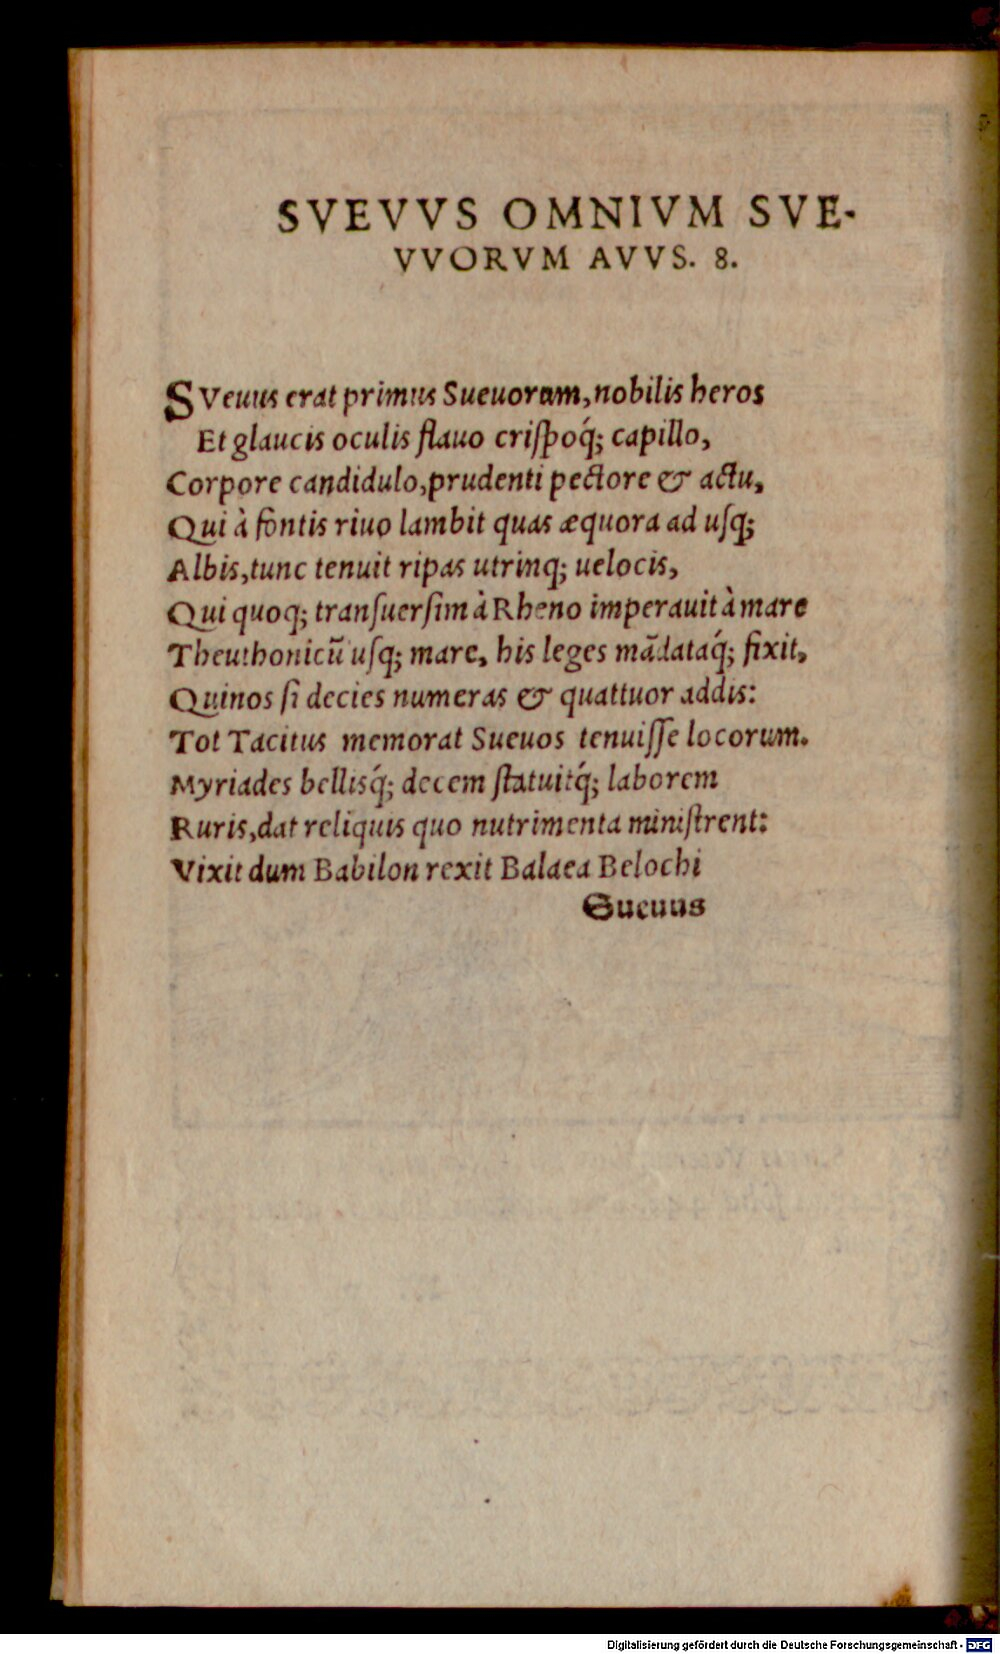 SVEVVS OMNIVM SVE-
VVORVM AVVS. 8.
SVeuus erat primus Sueuorum, nobilis heros
Et glaucis oculis flauo criſpoq́; capillo,
Corpore candidulo, prudenti pectore & actu,
Qui à fontis riuo lambit quas æquora ad uſq;
Albis, tunc tenuit ripas utrinq; uelocis,
Qui quoq; tranſuerſim à Rheno imperauit à mare
Theuthonicũ uſq; mare, his leges mãdataq́; fixit,
Quinos ſi decies numeras & quattuor addis:
Tot Tacitus memorat Sueuos tenuiſſe locorum.
Myriades bellisq́; decem ſtatuitq́; laborem
Ruris, dat reliquis quo nutrimenta miniſtrent:
Vixit dum Babilon rexit Balaea Belochi
Sueuus
Digitalisierung gefördert durch die Deutsche Forschungsgemeinschaft - DFG